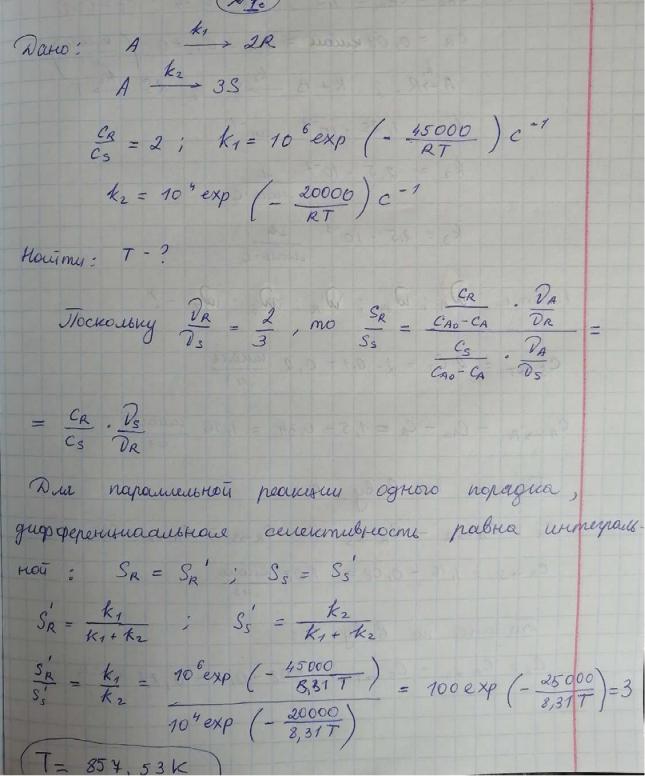 № 1.
Дано: A —k₁→ 2R
A —k₂→ 3S
C_R/C_S = 2 ; k₁ = 10⁶ exp (- 45000/RT) c⁻¹
k₂ = 10⁴ exp (- 20000/RT) c⁻¹
Найти: T - ?
Поскольку ν_R/ν_S = 2/3, то S_R/S_S = (C_R/(C_A₀ - C_A) · ν_A/ν_R)/(C_S/(C_A₀ - C_A) · ν_A/ν_S) =
= C_R/C_S · ν_S/ν_R
Для параллельной реакции одного порядка,
дифференциаальная селективность равна интеграль-
ной : S_R = S_R' ; S_S = S_S'
S_R' = k₁/(k₁ + k₂) ; S_S' = k₂/(k₁ + k₂)
S_R'/S_S' = k₁/k₂ = 10⁶ exp (- 45000/8,31 T)/10⁴ exp (- 20000/8,31 T) = 100 exp (- 25000/8,31 T) = 3
T = 857,53 K